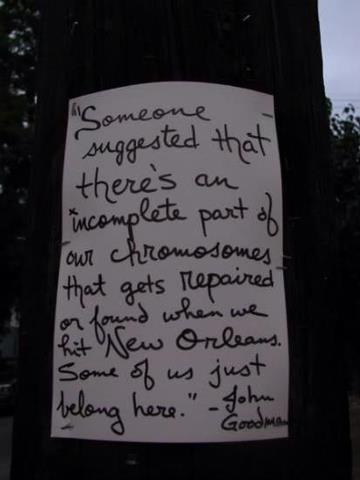 "Someone
suggested that
there's an
incomplete part of
our chromosomes
that gets repaired
or found when we
hit New Orleans.
Some of us just
belong here." - John
Goodman